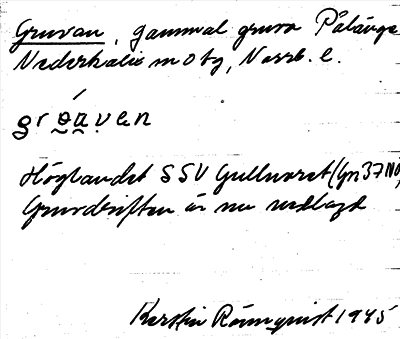 Gruvan, gammal gruva Palänge
Nederkalix m o tg, Norrb. l.
grǿ̯a̯ven
Höglandet SSV Gullnäset (Gn 37 NO)
Gruvdriften är nu nedlagd
Kerstin Rönnqvist 1945